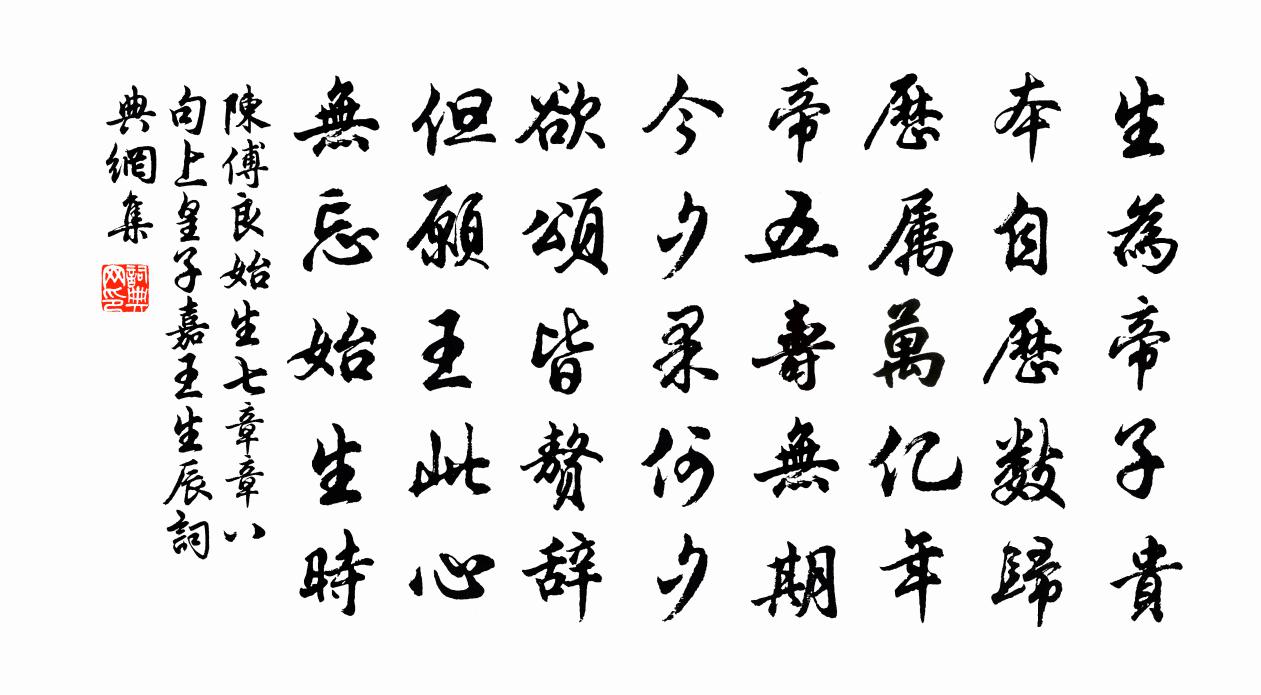 生為帝子貴
本自歷數歸
歷屬萬亿年
帝五壽無期
今夕果何夕
欲頌皆贅辞
但願王此心
無忘始生時
陳傅良始生七章章八
句上皇子嘉王生辰詞
典網集
詞典网印